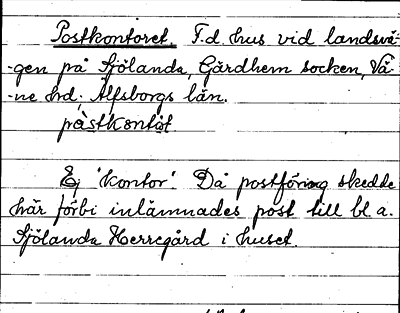 Postkontoret. F.d. hus vid landsvä-
-gen på Sjölanda, Gärdhem socken, Vä-
-ne hd. Älfsborgs län.
påstkontót
Ej 'kontor'. Då postföring skedde
här förbi inlämnades post till bl.a.
Sjölanda Herregård i huset.